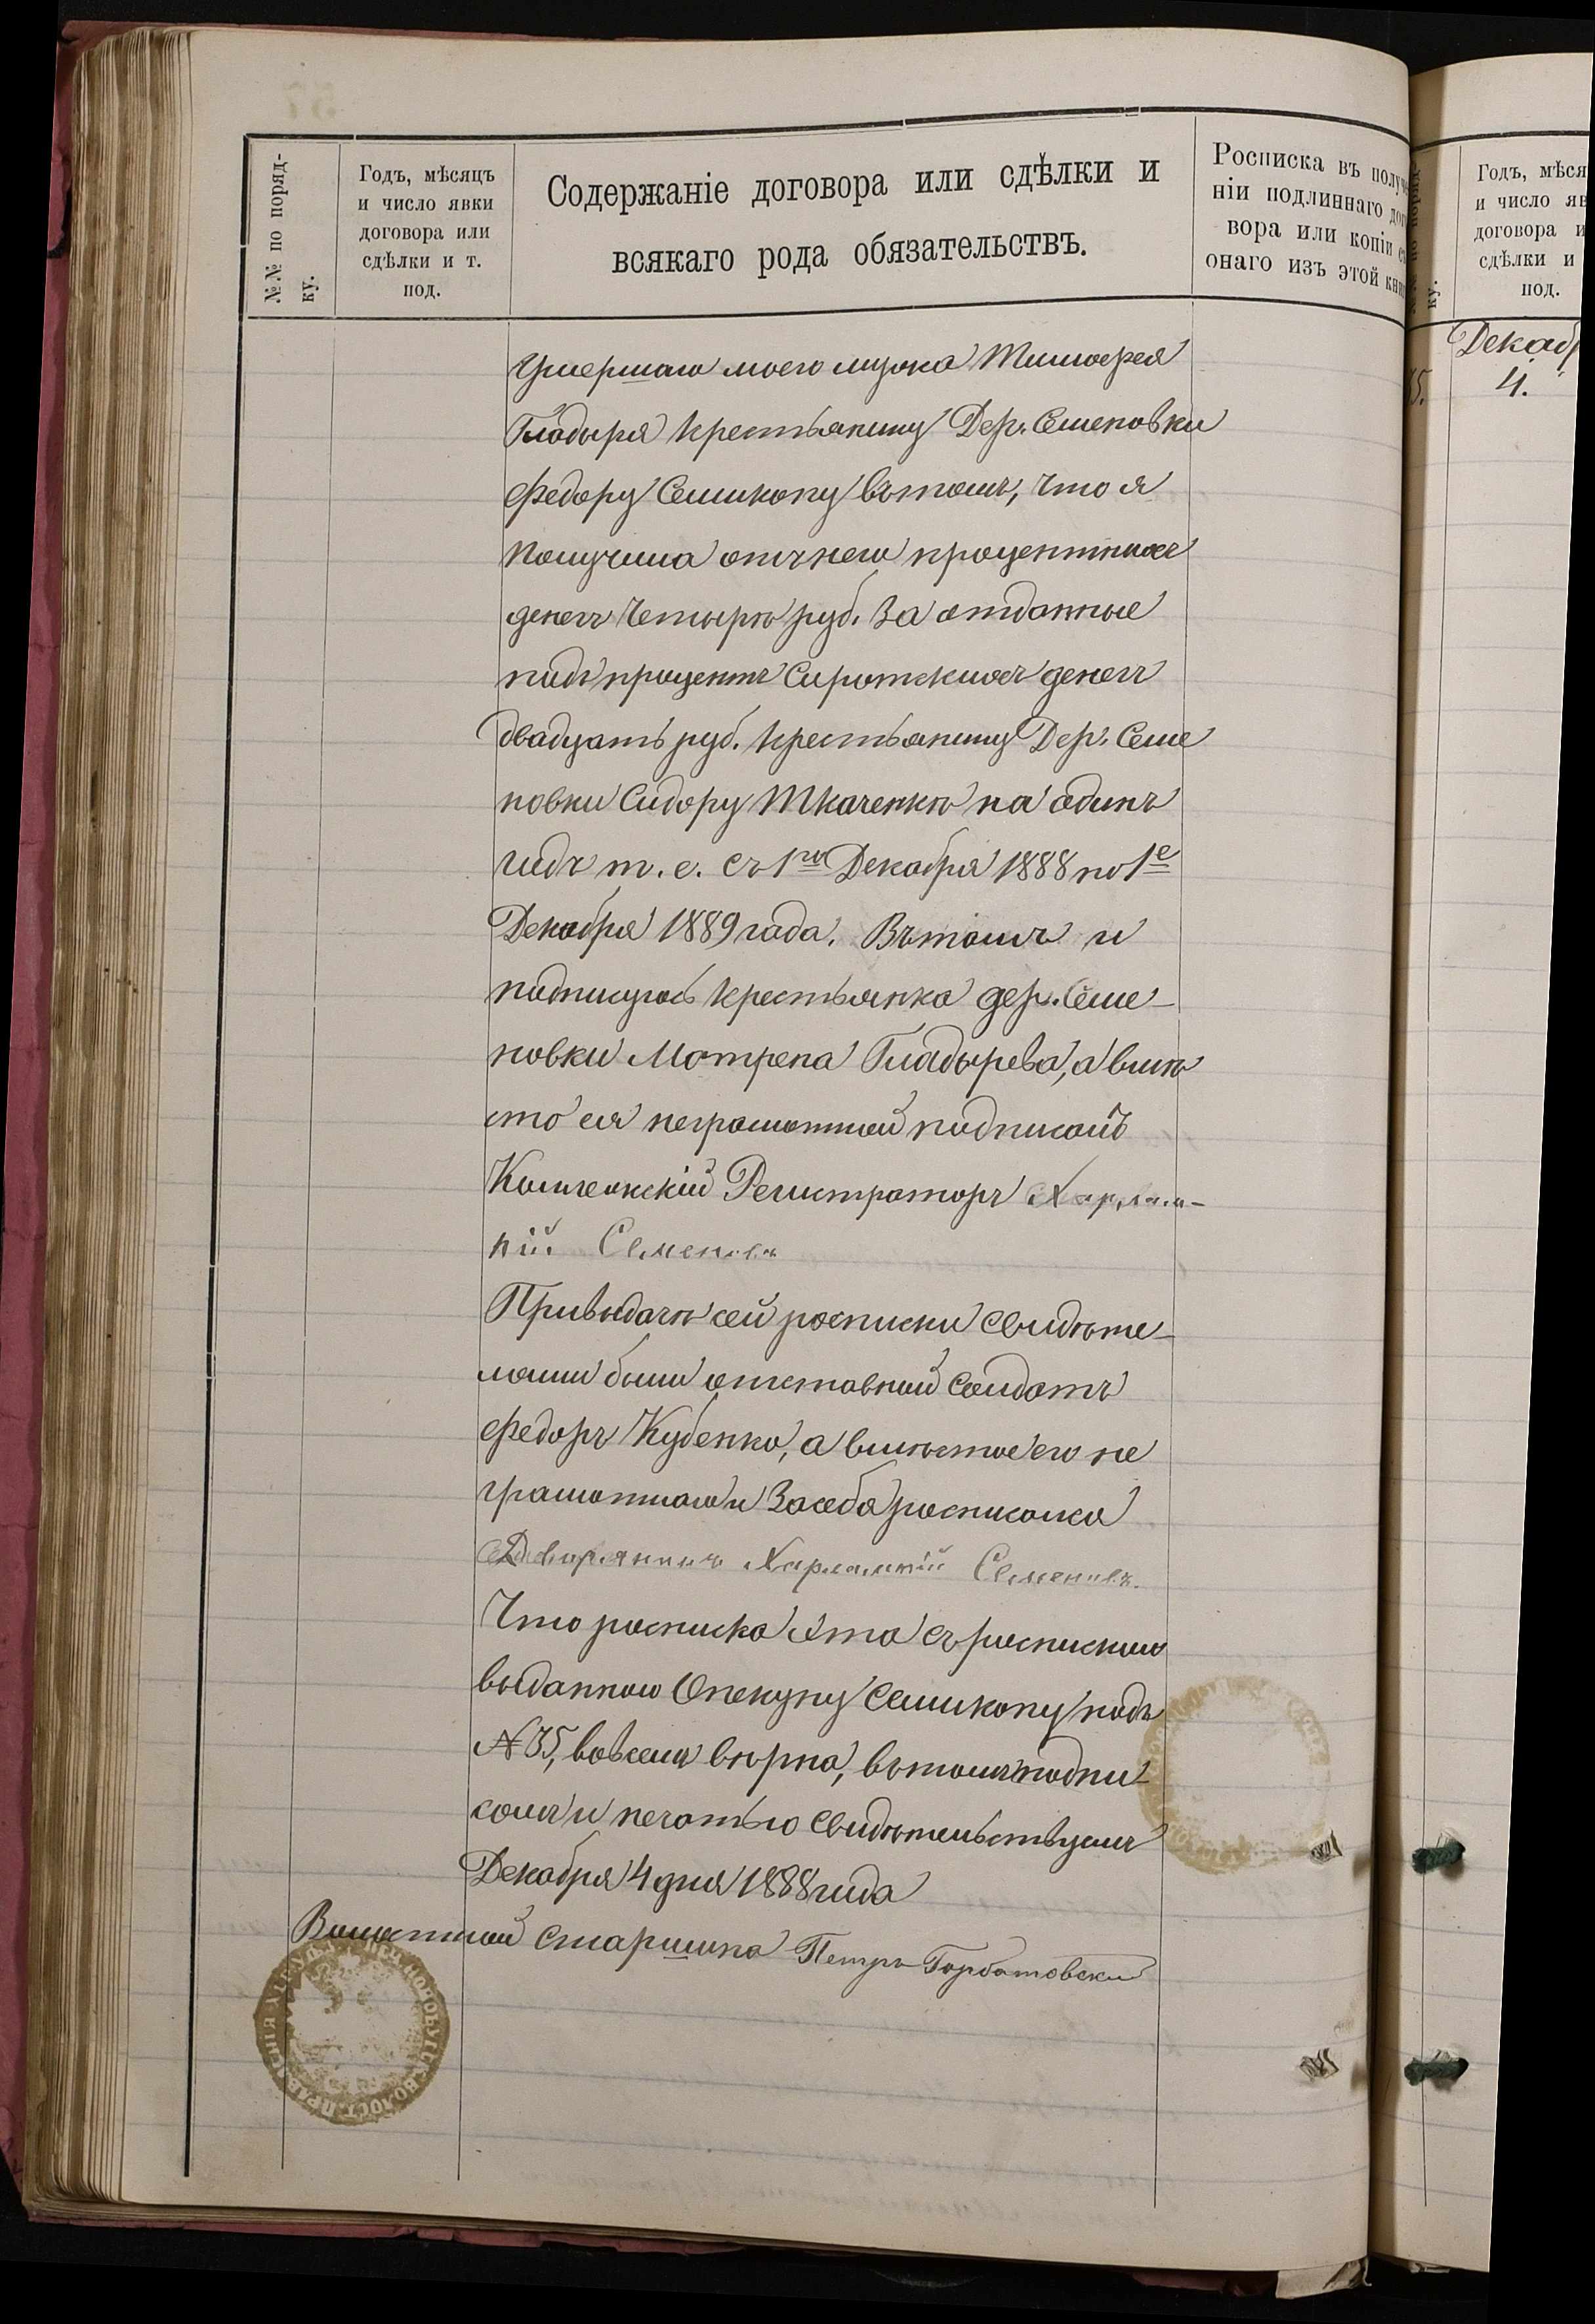 №№ по поряд-
ку.
Годъ, мѣсяцъ
и число явки
договора или
сдѣлки и т.
под.
Содержаніе договора или сдѣлки и
всякаго рода обязательствъ.
Росписка въ получе
ніи подлиннаго дого
вора или копіи съ
онаго изъ этой кни
умершаго моего мужа Тимофея
Гладыря крестьянину Дер. Семеновки
Федору Семикопу въ томъ, что я
получила отъ него процентныхъ
денегъ четыре руб. за отданные
подъ процентъ Сиротскихъ денегъ
двадцать руб. крестьянину Дер. Семе
новки Сидору Ткаченкѣ на одинъ
годъ т. е. съ 1го Декабря 1888 по 1е
Декабря 1889 года. Въ томъ и
подписуюсь крестьянка дер. Семе-
новки Мотрена Гладырева, а вмѣ
сто ея неграмотной подписалъ
Коллежскій Регистраторъ Харлам-
пій Семеновъ
При выдачѣ сей росписки свидѣте-
лями были отставной солдатъ
Федоръ Кубенко, а вмѣсто его не
грамотнаго и за себя росписался
Дворянинъ Харлампій Семеновъ.
Что росписка эта съ роспискою
выданною Опекуну Семикопу подъ
№ 35, во всемъ вѣрна, въ томъ подпи-
сомъ и печатью свидѣтельствуемъ
Декабря 4 дня 1888 года
Волостной старшина Петръ Горбатовскій
Годъ, мѣся
и число яв
договора и
сдѣлки и
под.
ку.
Декабр
5.
4.